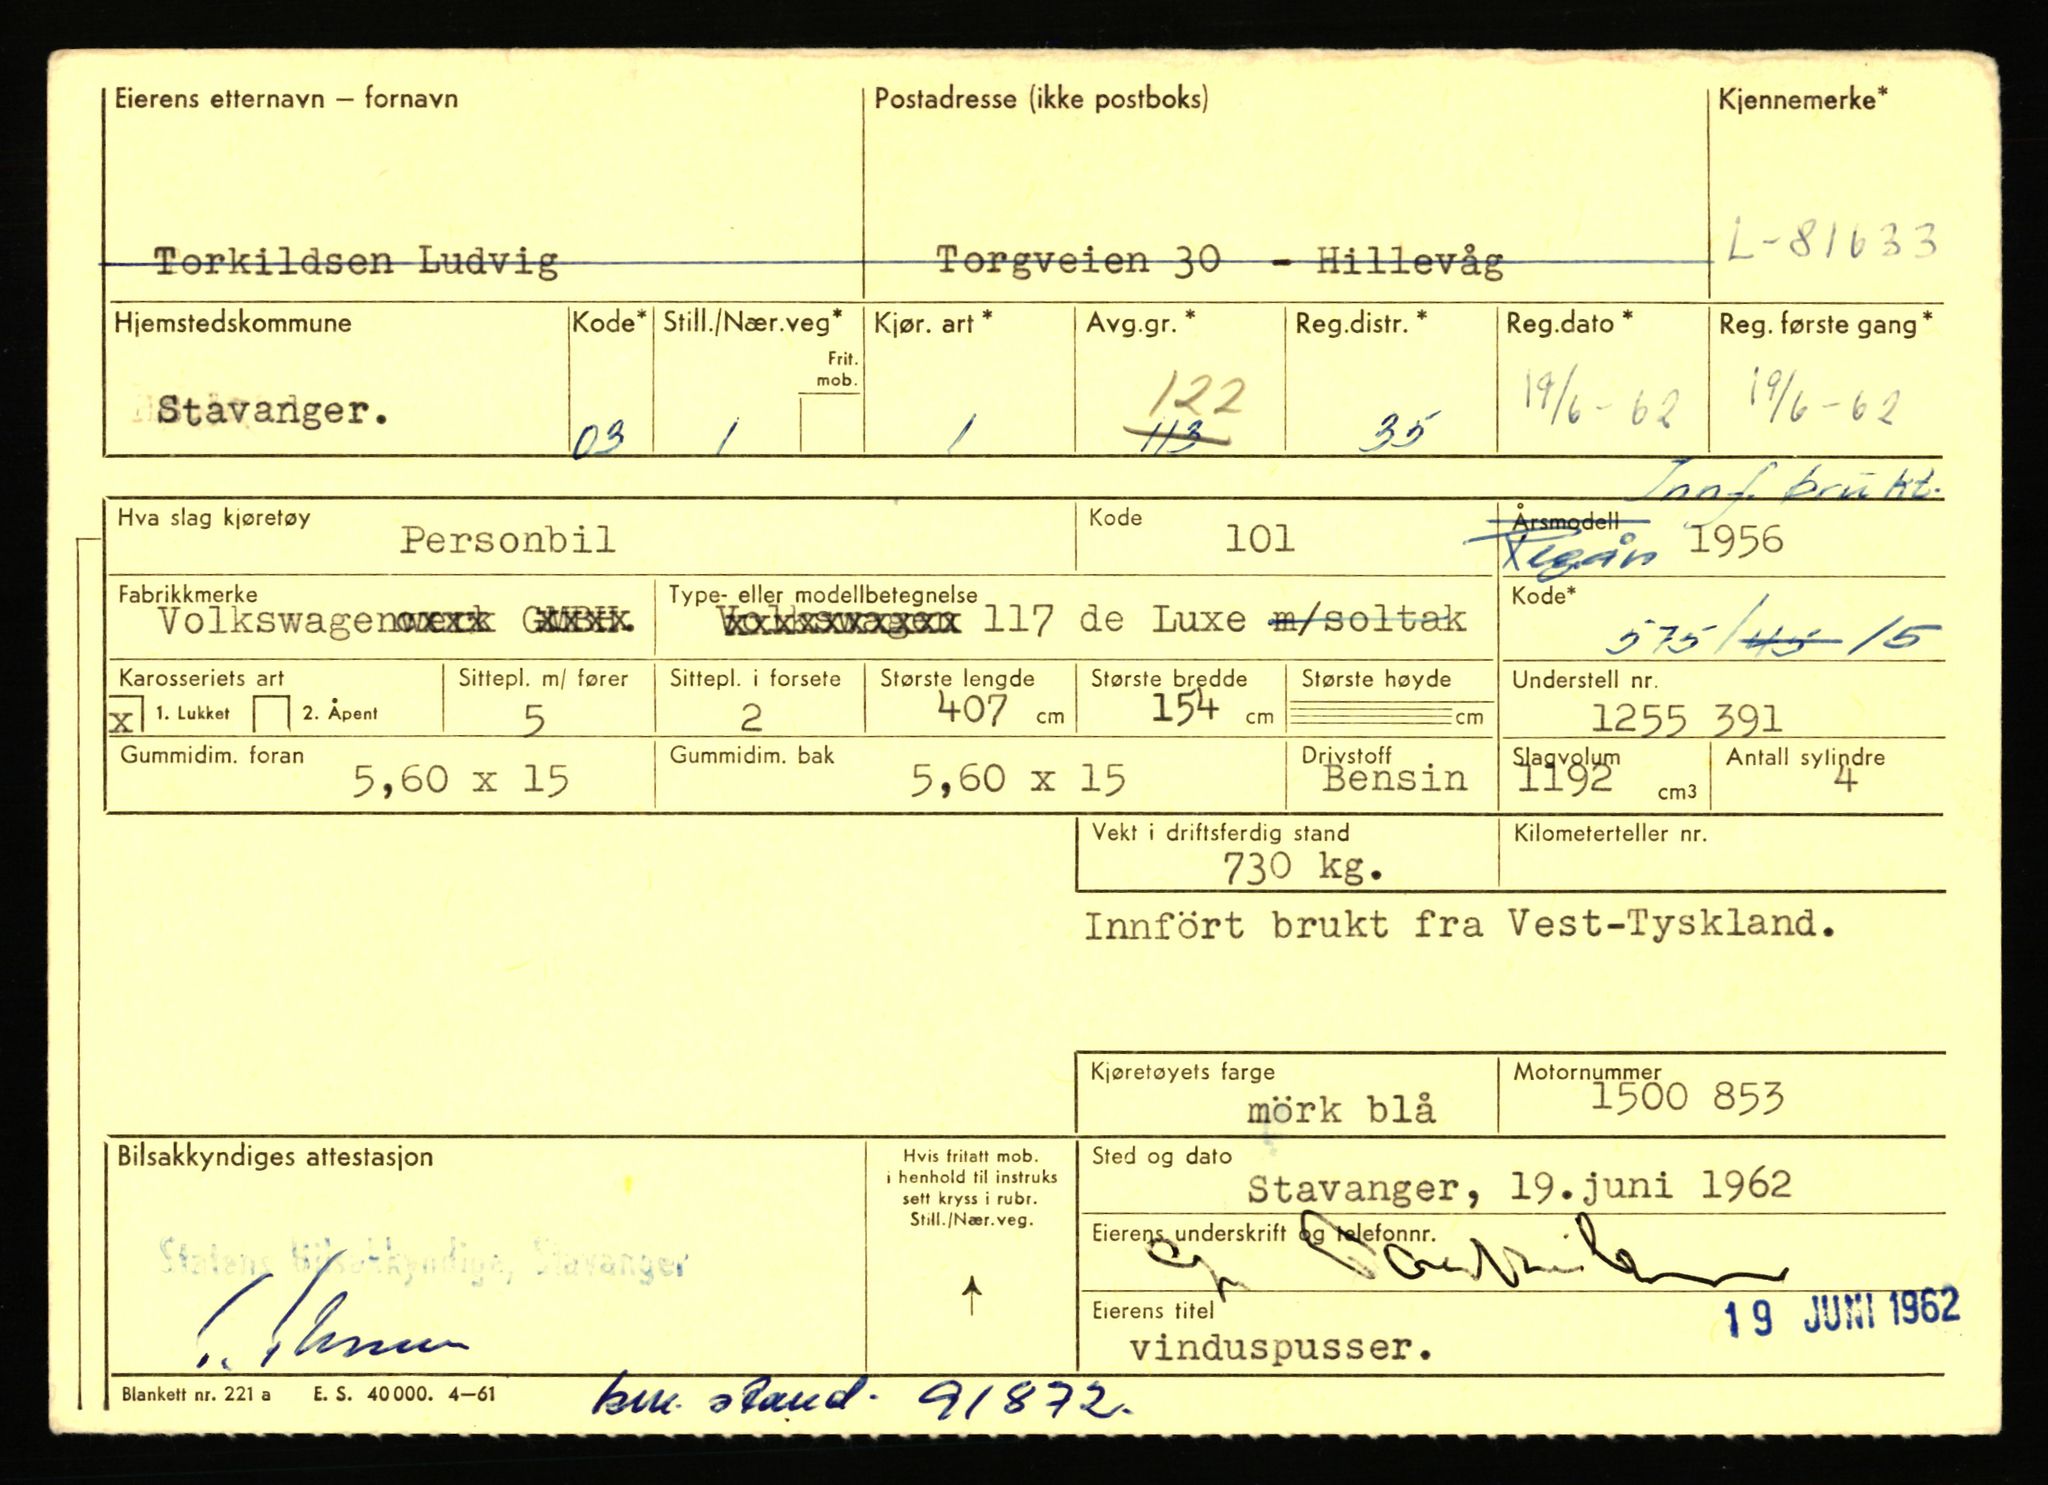 Eierens etternavn – fornavn
Postadresse (ikke postboks)
Kjennemerke*
Torkildsen Ludvig
Torgveien 30 - Hillevåg
L-81633
Hjemstedskommune
Kode*
Still./Nær.veg*
Kjør. art *
Avg.gr. *
Reg.distr. *
Reg.dato *
Reg. første gang *
Frit. mob.
Stavanger.
03
1
1
122
113
35
19/6 - 62
19/6 - 62
Innf. brukt.
Hva slag kjøretøy
Personbil
Kode
101
Årsmodell
Reg.år 1956
Fabrikkmerke
Volkswagenwerk GMBH.
Type- eller modellbetegnelse
Volkswagen 117 de Luxe m/soltak
Kode*
575/45 15
Karosseriets art
Sittepl. m/ fører
Sittepl. i forsete
Største lengde
Største bredde
Største høyde
Understell nr.
x 1. Lukket
2. Åpent
5
2
407 cm
154 cm
cm
1255 391
Gummidim. foran
5,60 x 15
Gummidim. bak
5,60 x 15
Drivstoff
Bensin
Slagvolum
1192 cm3
Antall sylindre
4
Vekt i driftsferdig stand
730 kg.
Kilometerteller nr.
Innfört brukt fra Vest-Tyskland.
Kjøretøyets farge
mörk blå
Motornummer
1500 853
Bilsakkyndiges attestasjon
Hvis fritatt mob.
i henhold til instruks
sett kryss i rubr.
Still./Nær.veg.
Sted og dato
Stavanger, 19.juni 1962
Statens bilsakkyndige, Stavanger
Eierens underskrift og telefonnr.
Eierens titel
vinduspusser.
19 JUNI 1962
Blankett nr. 221 a E. S. 40 000. 4–61
km. stand. 91872.